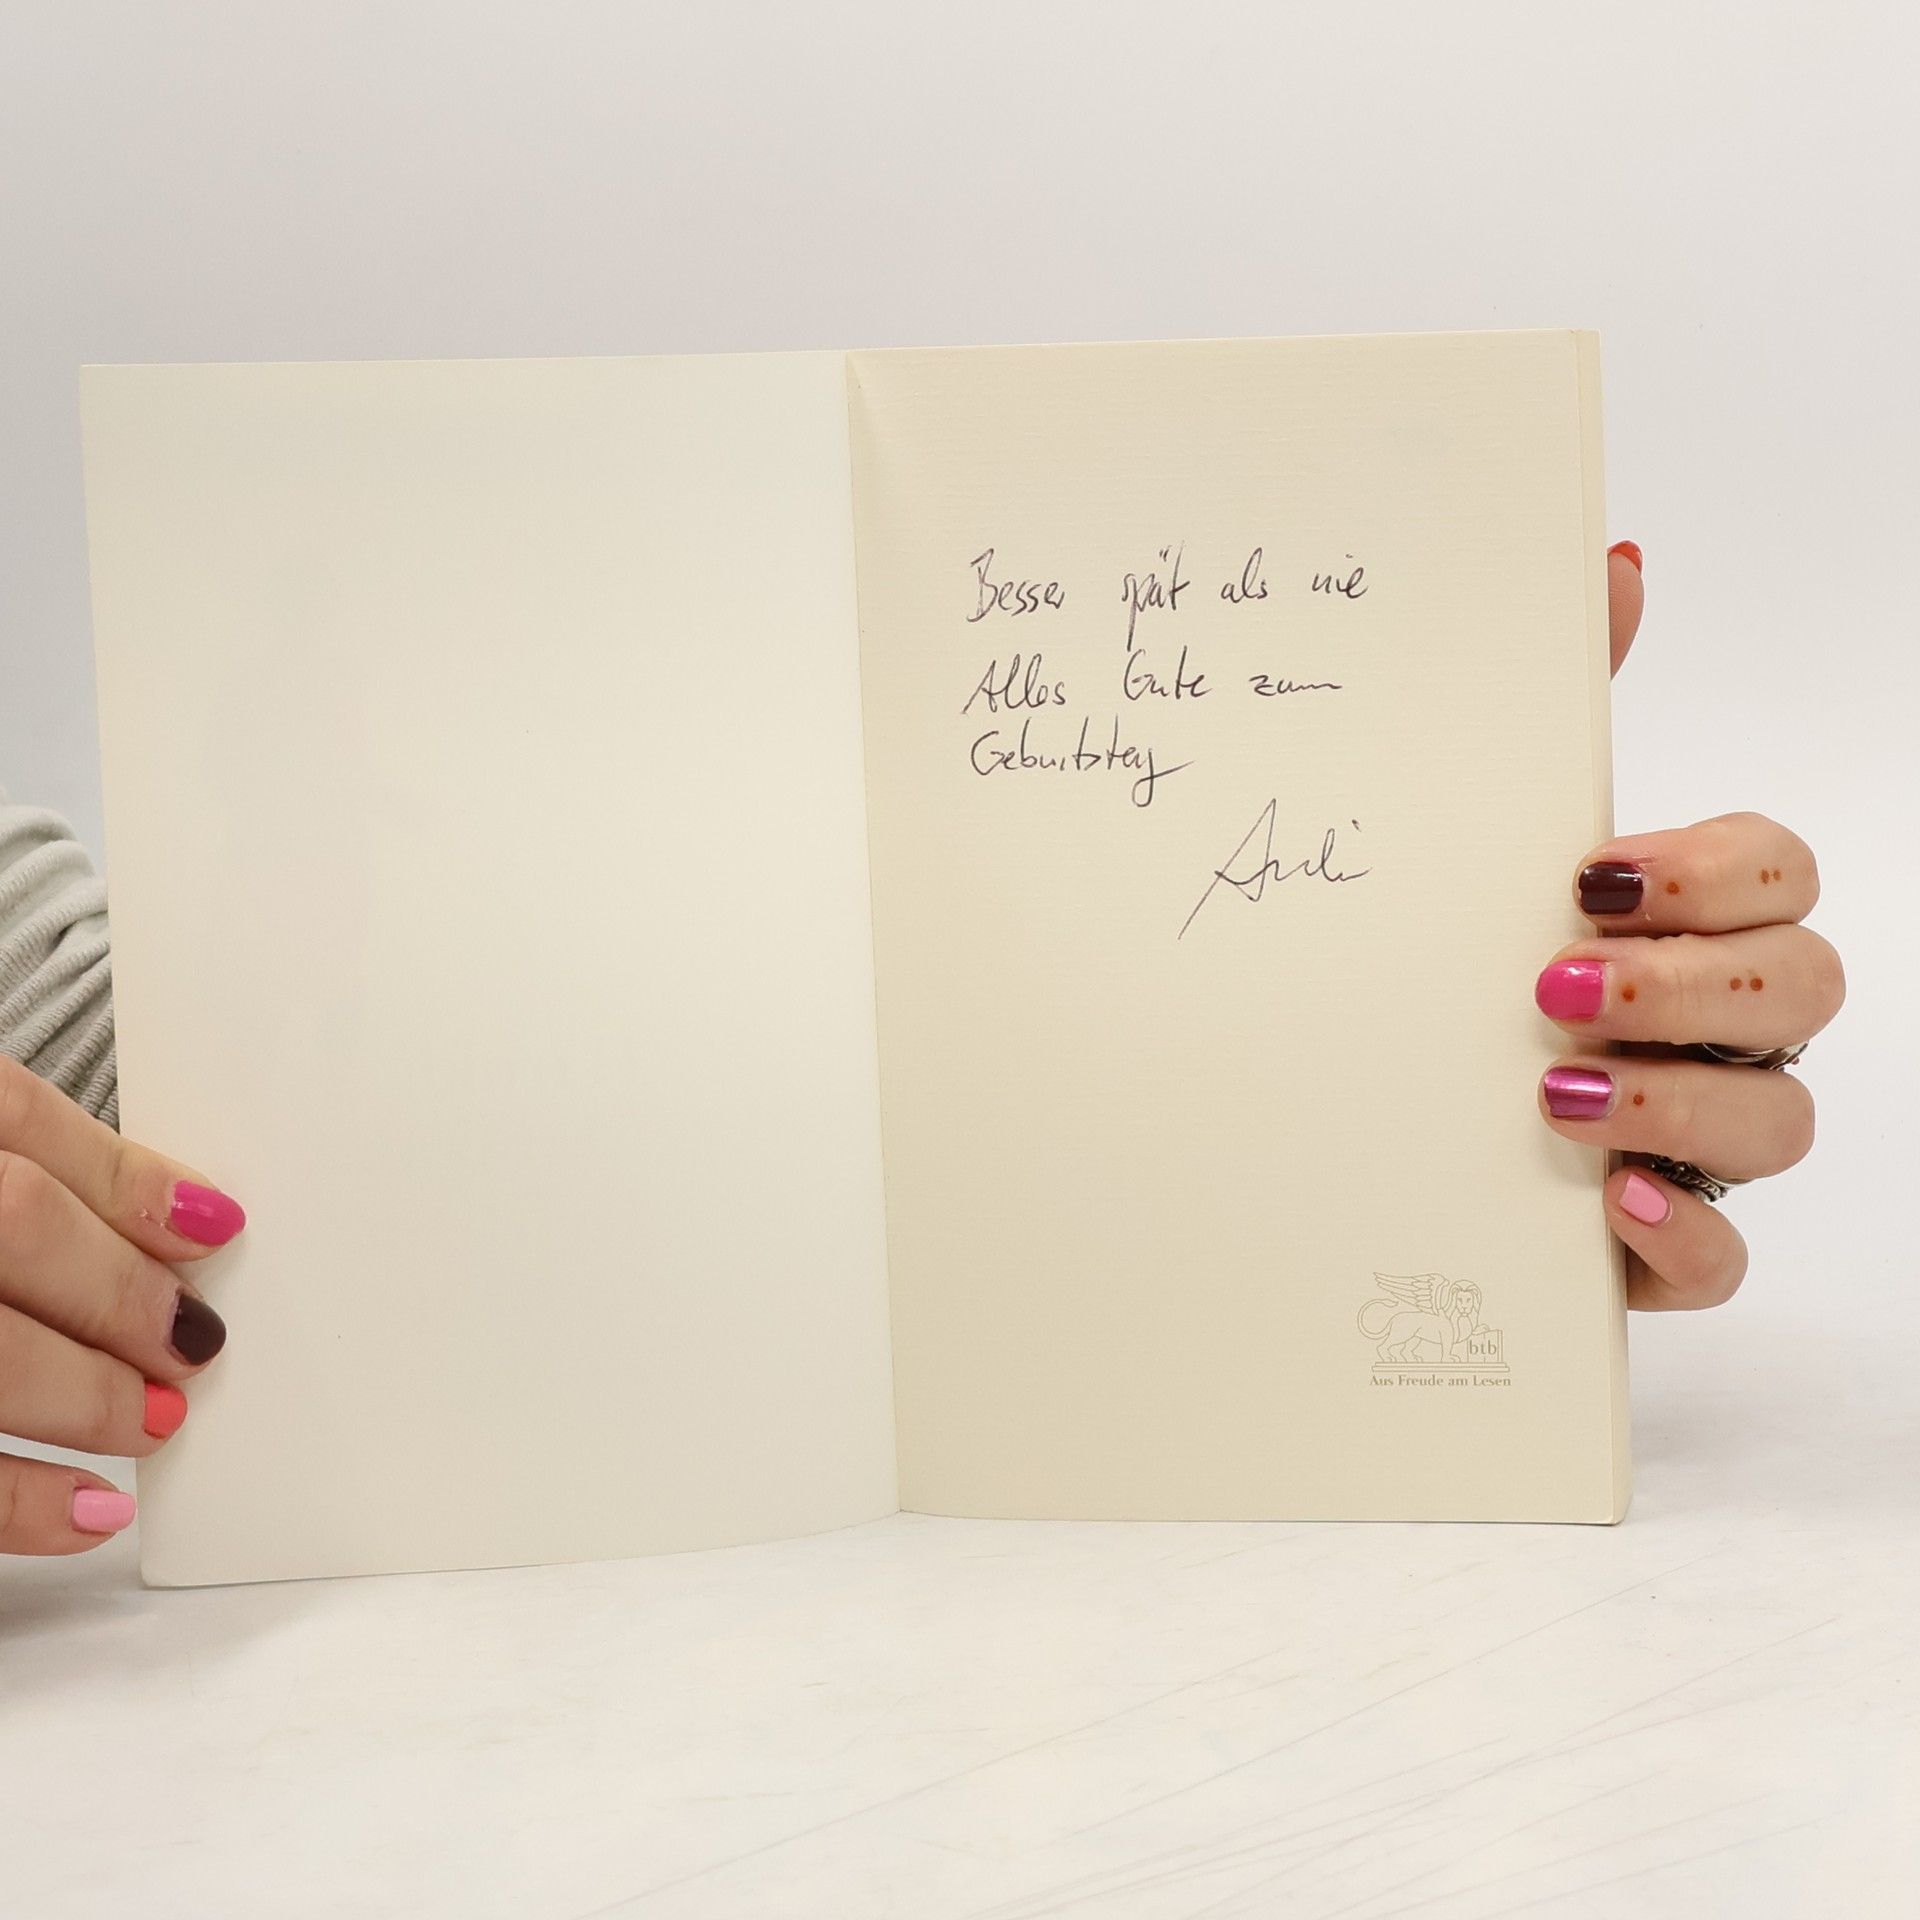 Besser spät als nie
Alles Gute zum
Geburtstag
Andi
btb
Aus Freude am Lesen